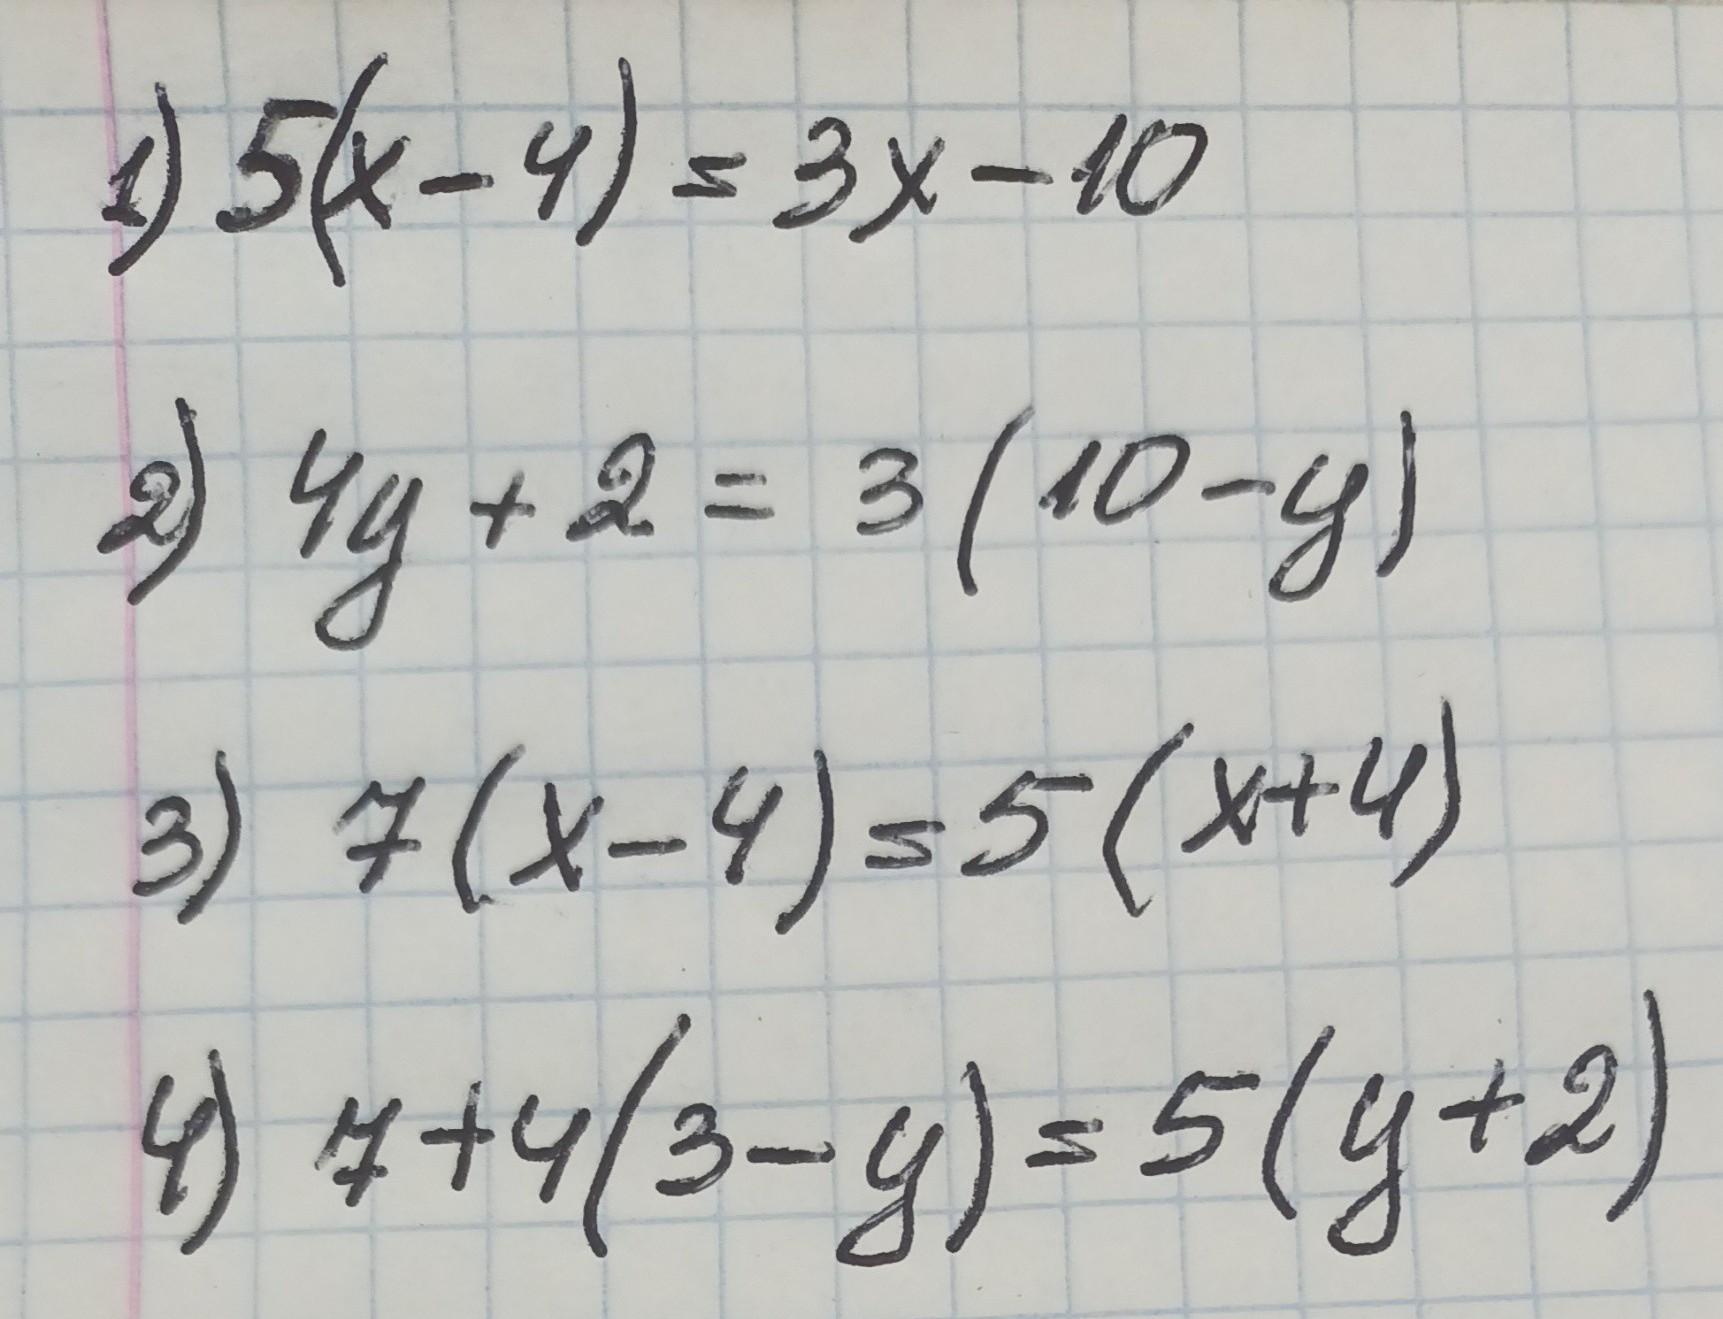 1) 5(x-4) = 3x-10
2) 4y + 2 = 3(10-y)
3) 7(x-4) = 5(x+4)
4) 7+4(3-y) = 5(y+2)